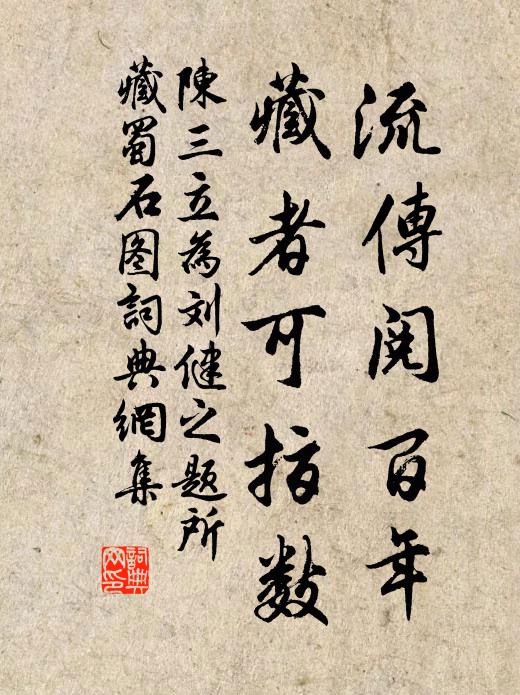 流傳閱百年
藏者可指數
陳三立為刘健之題所
藏蜀石图詞典網集
詞典
网印